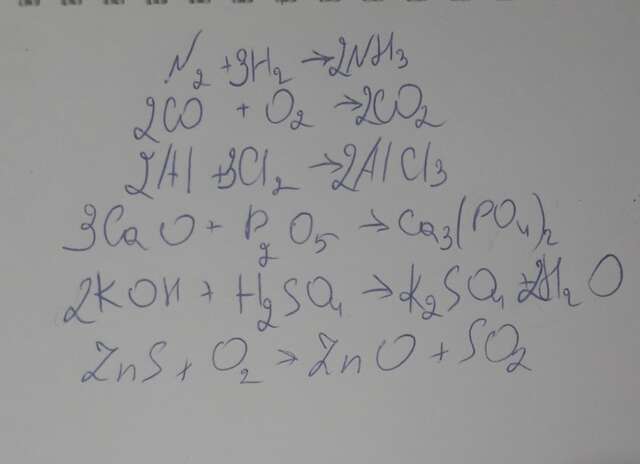 N₂ + 3H₂ → 2NH₃
2CO + O₂ → 2CO₂
2Al + 3Cl₂ → 2AlCl₃
3CaO + P₂O₅ → Ca₃(PO₄)₂
2KOH + H₂SO₄ → K₂SO₄ + 2H₂O
ZnS + O₂ → ZnO + SO₂